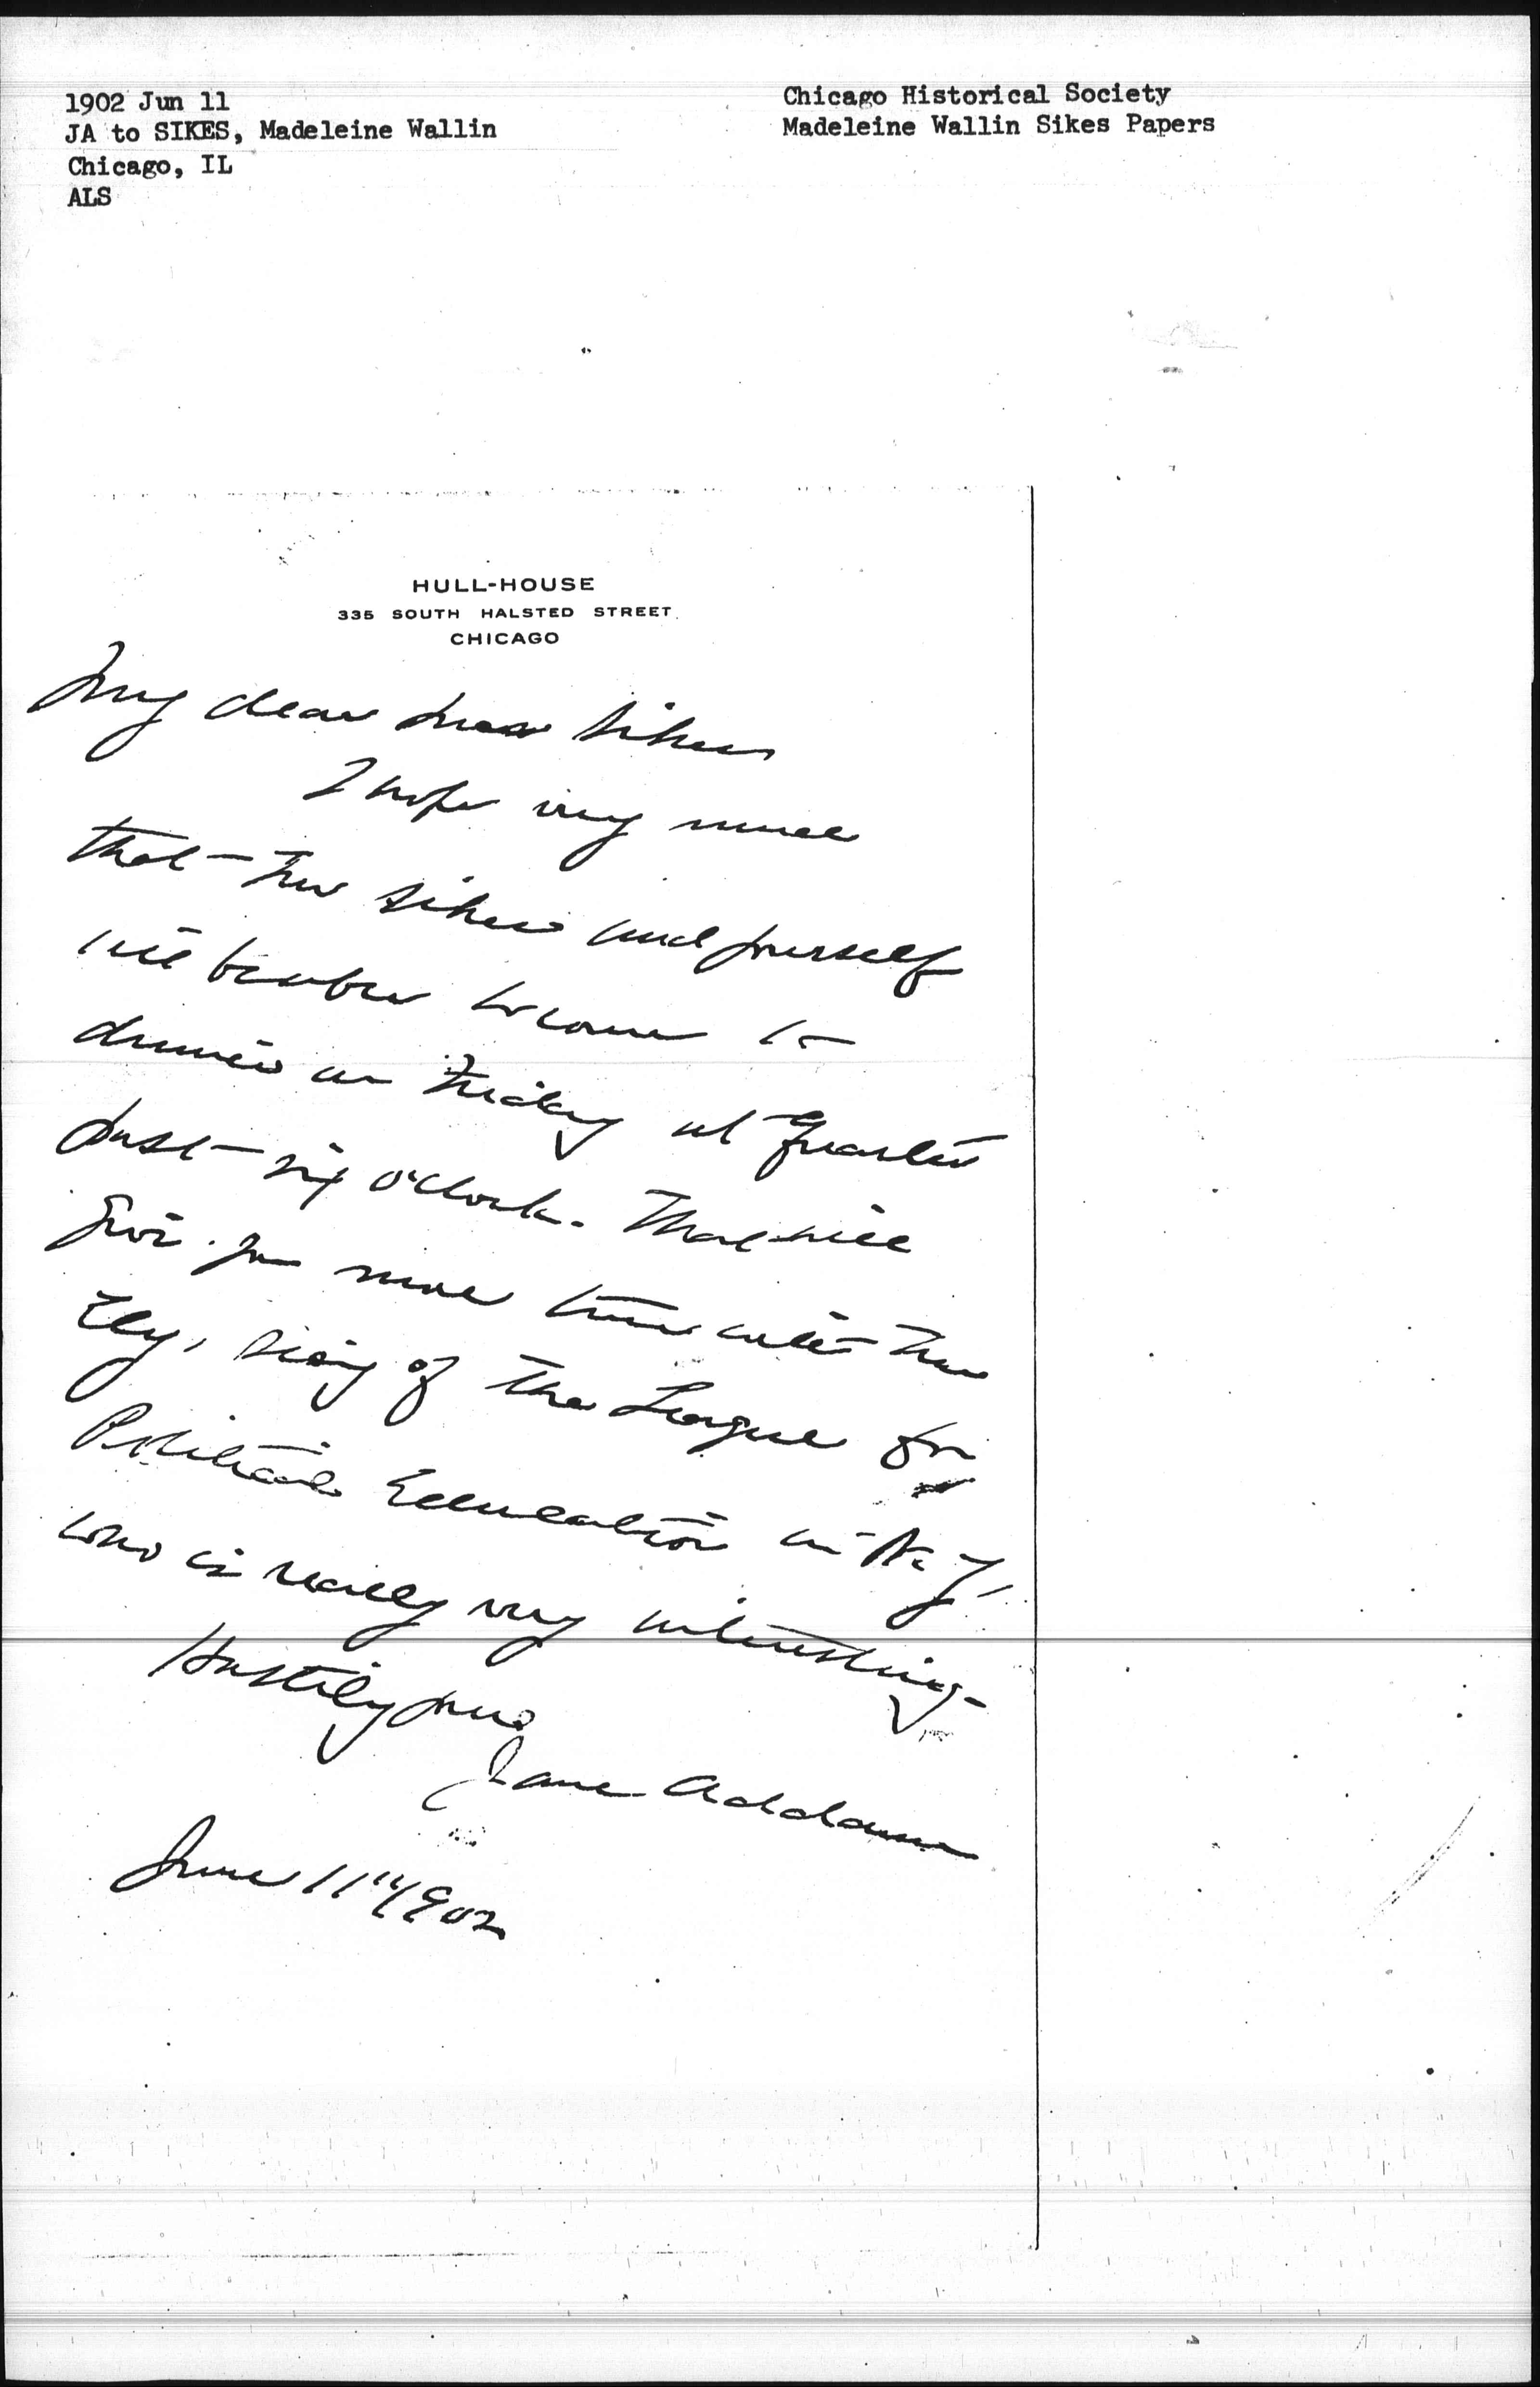 1902 Jun 11
JA to SIKES, Madeleine Wallin
Chicago, IL
ALS
Chicago Historical Society
Madeleine Wallin Sikes Papers
HULL-HOUSE
335 SOUTH HALSTED STREET
CHICAGO
My dear Mrs Sikes
I hope very much
that Mr Sikes and yourself
will be able to come to
dinner on Friday at quarter
past six o'clock. That will
give you more time with Mr
Ely, Sec'y of the League for
Political Education in N. Y.
who is really very interesting.
Hastily yours
Jane Addams
June 11" 1902